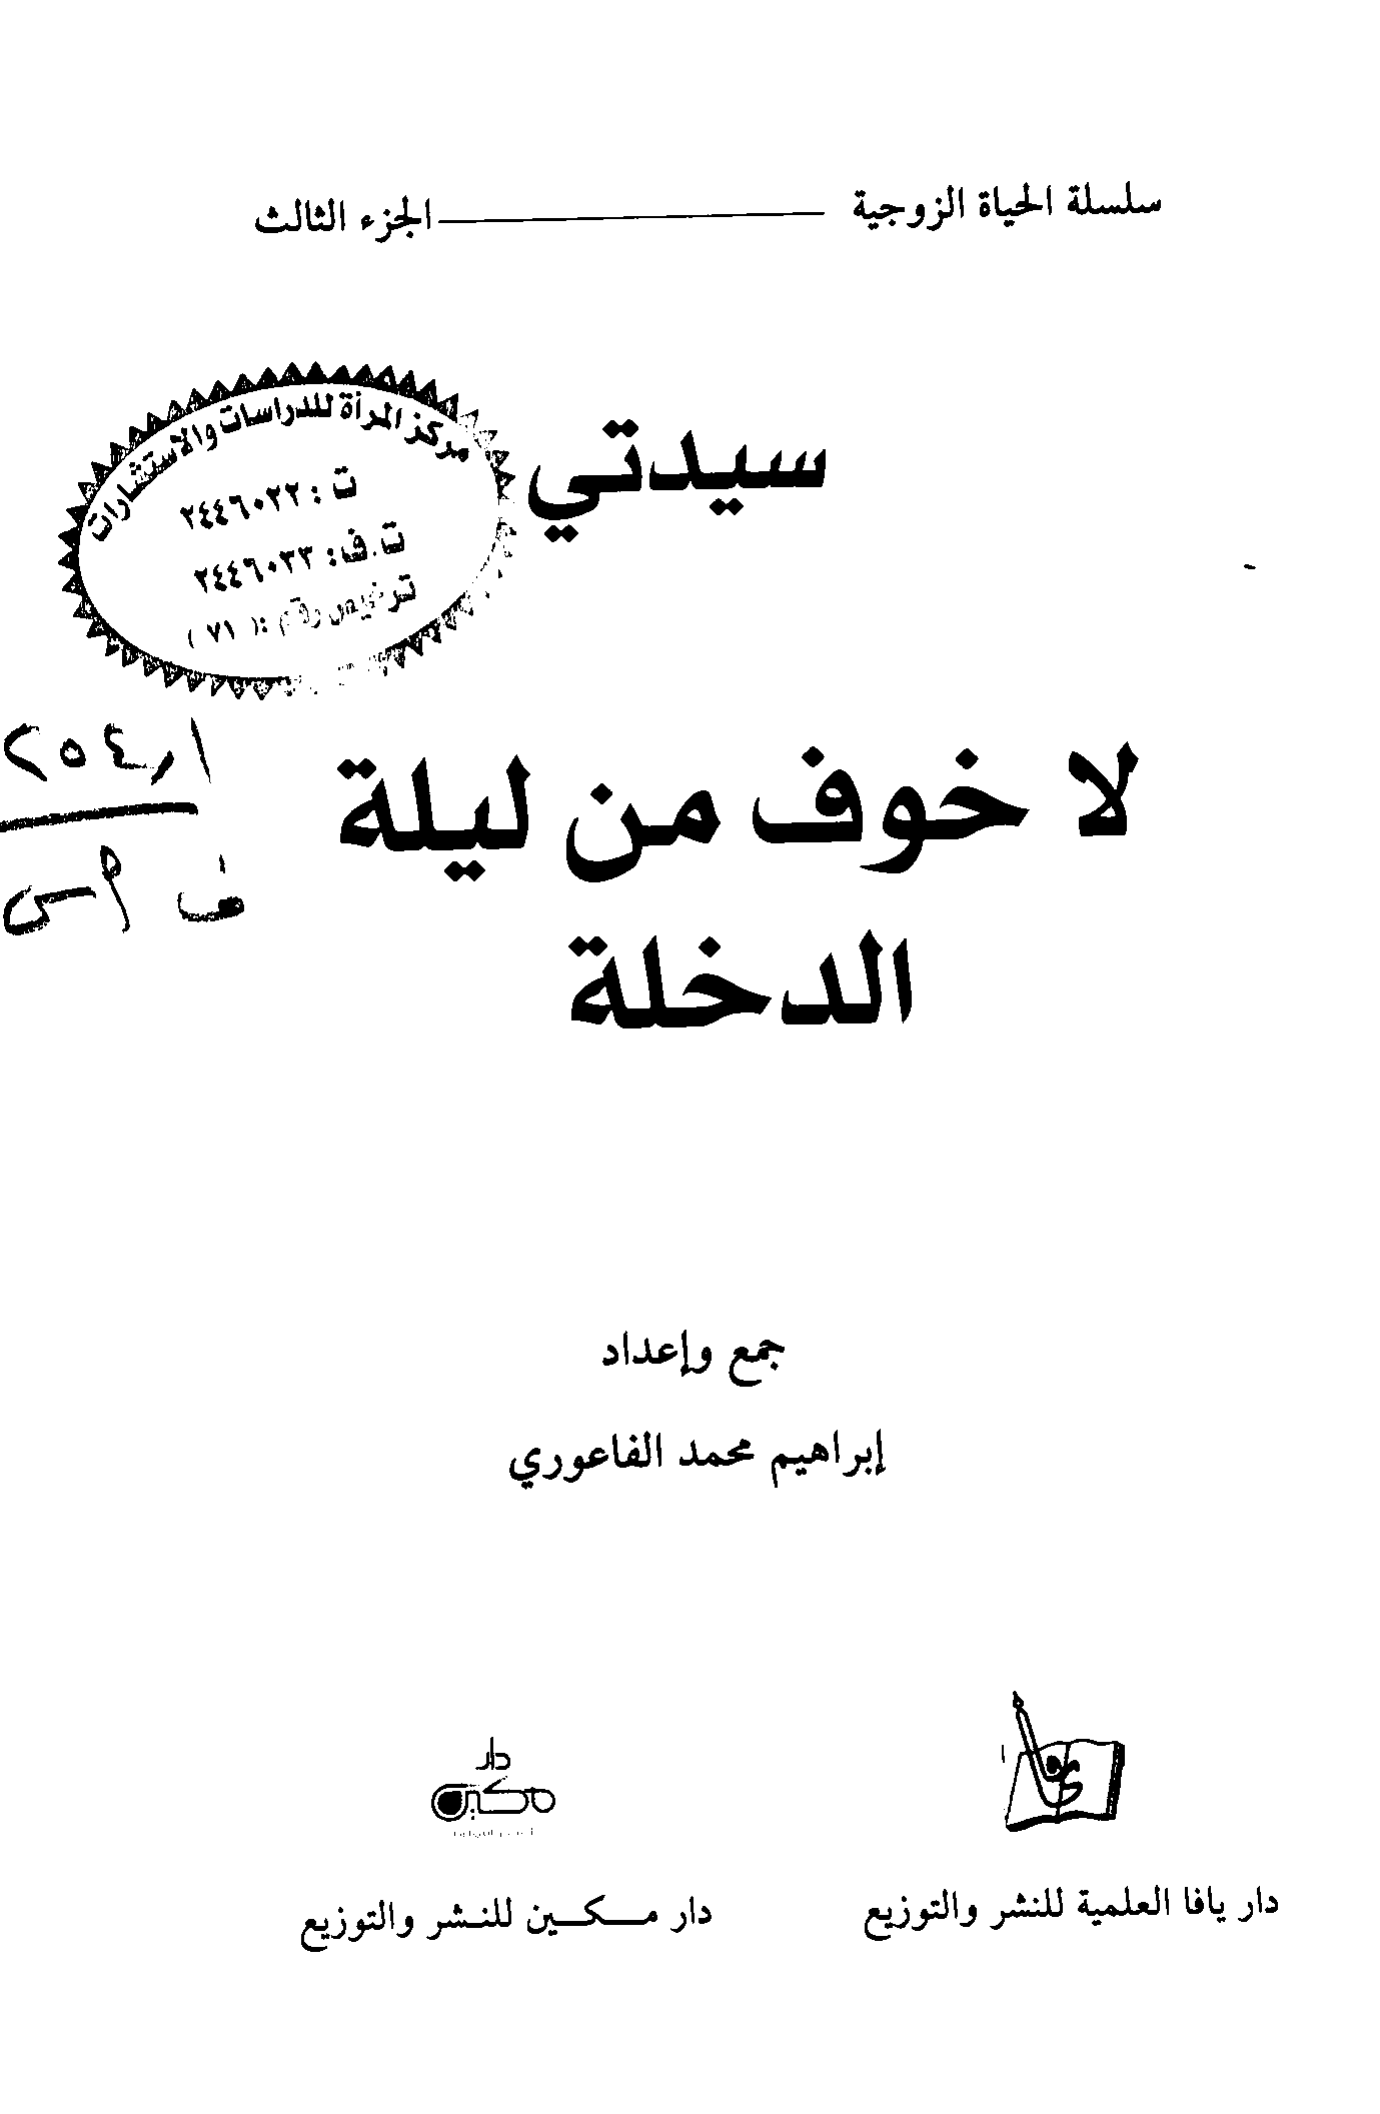 سلسلة الحياة الزوجية ــــــــــــ الجزء الثالث
مركز المرأة للدراسات والاستشارات
ت : ٢٤٤٦٠٢٢
ت.ف: ٢٤٤٦٠٣٣
ترخيص رقم :( ٧١ )
سيدتي
لا خوف من ليلة
الدخلة
جمع وإعداد
إبراهيم محمد الفاعوري
دار
مكين
دار يافا العلمية للنشر والتوزيع
دار مكين للنشر والتوزيع